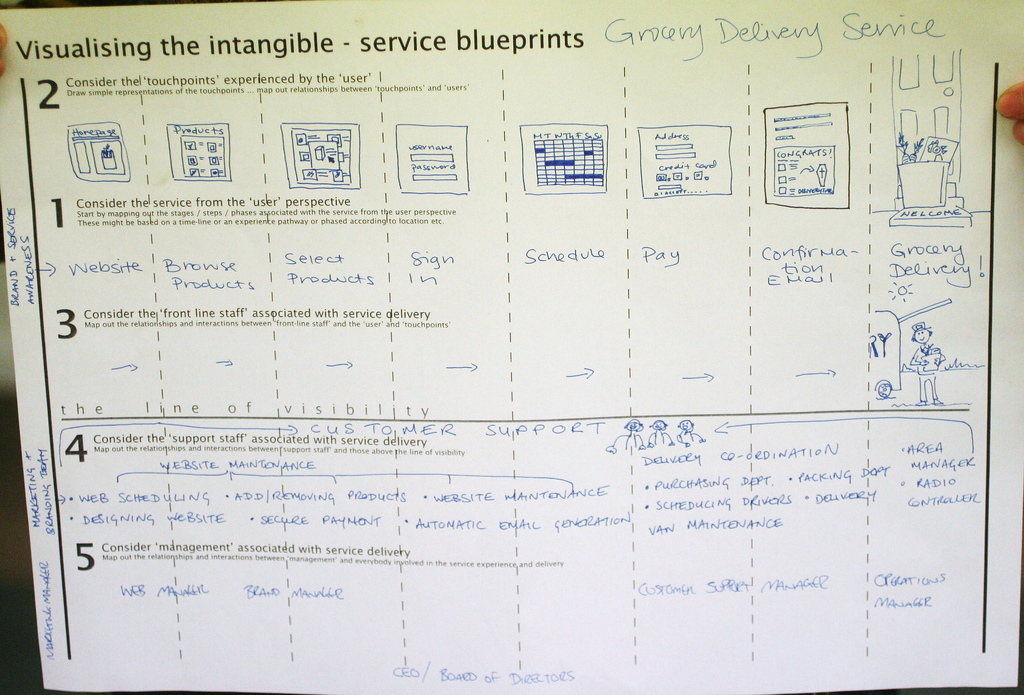 Visualising the intangible - service blueprints
Grocery Delivery Service
2 Consider the 'touchpoints' experienced by the 'user'
Draw simple representations of the touchpoints ... map out relationships between 'touchpoints' and 'users'
Homepage
Products
username
password
M T W Th F Sa Su
Address
Credit Card
CONGRATS!
WELCOME
1 Consider the service from the 'user' perspective
Start by mapping out the stages / steps / phases associated with the service from the user perspective
These might be based on a time-line or an experience pathway or phased according to location etc.
BRAND + SERVICE
AWARENESS
Website
Browse
Products
Select
Products
Sign
In
Schedule
Pay
Confirma-
tion
Email
Grocery
Delivery!
3 Consider the 'front line staff' associated with service delivery
Map out the relationships and interactions between 'front-line staff' and the 'user' and 'touchpoints'
RY
the line of visibility
CUSTOMER SUPPORT
4 Consider the 'support staff' associated with service delivery
Map out the relationships and interactions between 'support staff' and those above the line of visibility
MARKETING +
BRANDING TEAM
WEBSITE MAINTENANCE
• WEB SCHEDULING • ADD/REMOVING PRODUCTS • WEBSITE MAINTENANCE
• DESIGNING WEBSITE • SECURE PAYMENT • AUTOMATIC EMAIL GENERATION
DELIVERY CO-ORDINATION
• PURCHASING DEPT. • PACKING DEPT
• SCHEDULING DRIVERS • DELIVERY
VAN MAINTENANCE
• AREA
MANAGER
• RADIO
CONTROLLER
5 Consider 'management' associated with service delivery
Map out the relationships and interactions between 'management' and everybody involved in the service experience and delivery
MARKETING MANAGER
WEB MANAGER
BRAND MANAGER
CUSTOMER SUPPORT MANAGER
OPERATIONS
MANAGER
CEO/ BOARD OF DIRECTORS